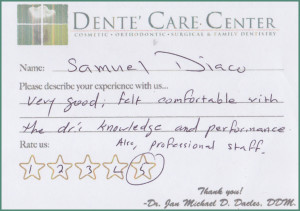 DENTE' CARE CENTER
COSMETIC • ORTHODONTIC • SURGICAL & FAMILY DENTISTRY
Name: Samuel Diaco
Please describe your experience with us...
Very good; felt comfortable with
the dr's knowledge and performance.
Also, professional staff.
Rate us:
1 2 3 4 5
Thank you!
-Dr. Jan Michael D. Daeles, DDM.